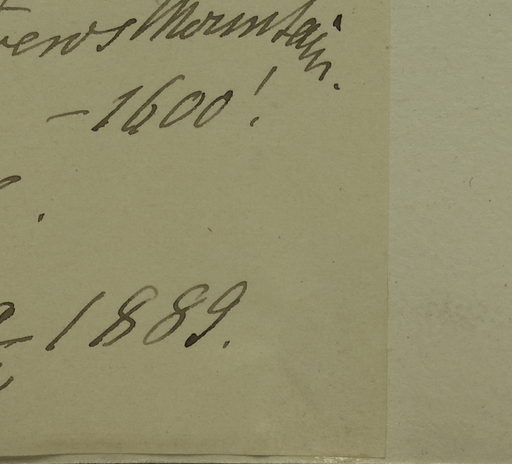 Mountain.
-1600!
1889.